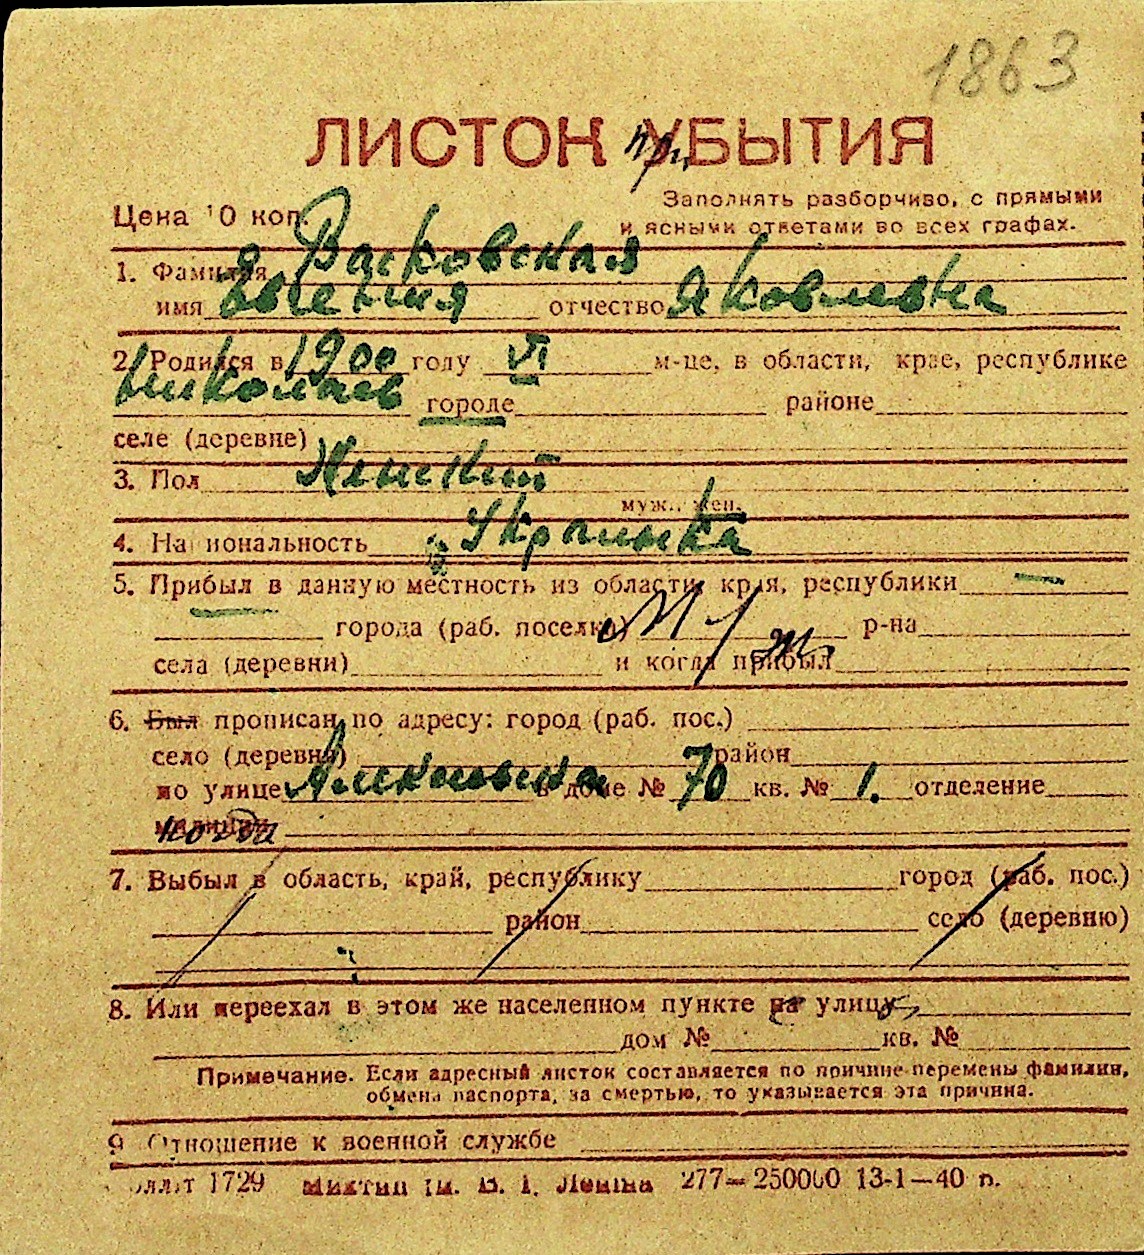 1863
ЛИСТОК при УБЫТИЯ
Заполнять разборчиво, с прямыми
Цена 10 коп. и ясными ответами во всех графах.
1. Фамилия Варковская
имя Евгения отчество Яковлевна
2. Родился в 1900 году VI м-це, в области, крае, республике
Николаев городе районе
селе (деревне)
3. Пол Женский
муж., жен.
4. Национальность Украинка
5. Прибыл в данную местность из области, края, республики —
города (раб. поселка) р-на
села (деревни) и когда прибыл
6. Был прописан по адресу: город (раб. пос.)
село (деревня) район
по улице в доме № 70 кв. № 1. отделение
милиции когда
7. Выбыл в область, край, республику город (раб. пос.)
район село (деревню)
8. Или переехал в этом же населенном пункте на улицу
дом № кв. №
Примечание. Если адресный листок составляется по причине перемены фамилии,
обмена паспорта, за смертью, то указывается эта причина.
9 Отношение к военной службе
1729 ім. В. І. Леніна 277—250000 13-1—40 р.